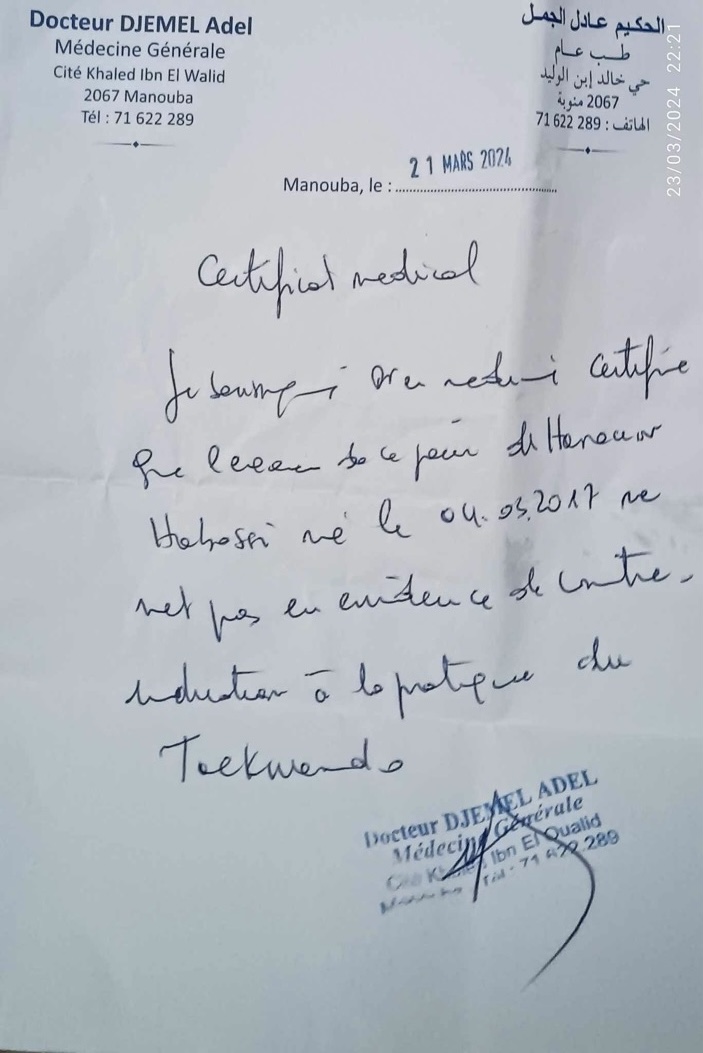 Docteur DJEMEL Adel
Médecine Générale
Cité Khaled Ibn El Walid
2067 Manouba
Tél : 71 622 289
الحكيم عادل الجمل
طب عام
حي خالد إبن الوليد
2067 منوبة
الهاتف : 289 622 71
23/03/2024 22:21
Manouba, le : 21 MARS 2024
Certificat medical
Je soussigné Dr en medecine certifie
que l'examen de ce jour de
né le 04.03.2017 ne
met pas en evidence de contre-
indication à la pratique du
Taekwondo
Docteur DJEMEL ADEL
Médecine Générale
Cité Khaled Ibn El Oualid
Tél : 71 622 289